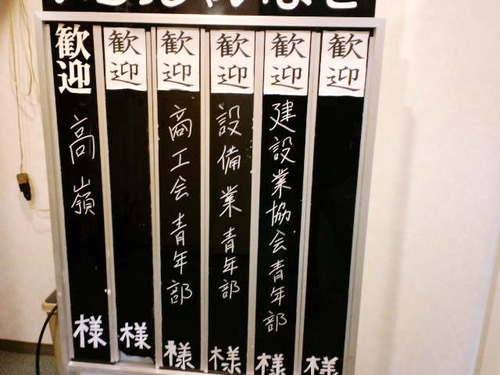 歓迎 様
歓迎 建設業協会青年部 様
歓迎 設備業青年部 様
歓迎 商工会青年部 様
歓迎 様
歓迎 高嶺 様